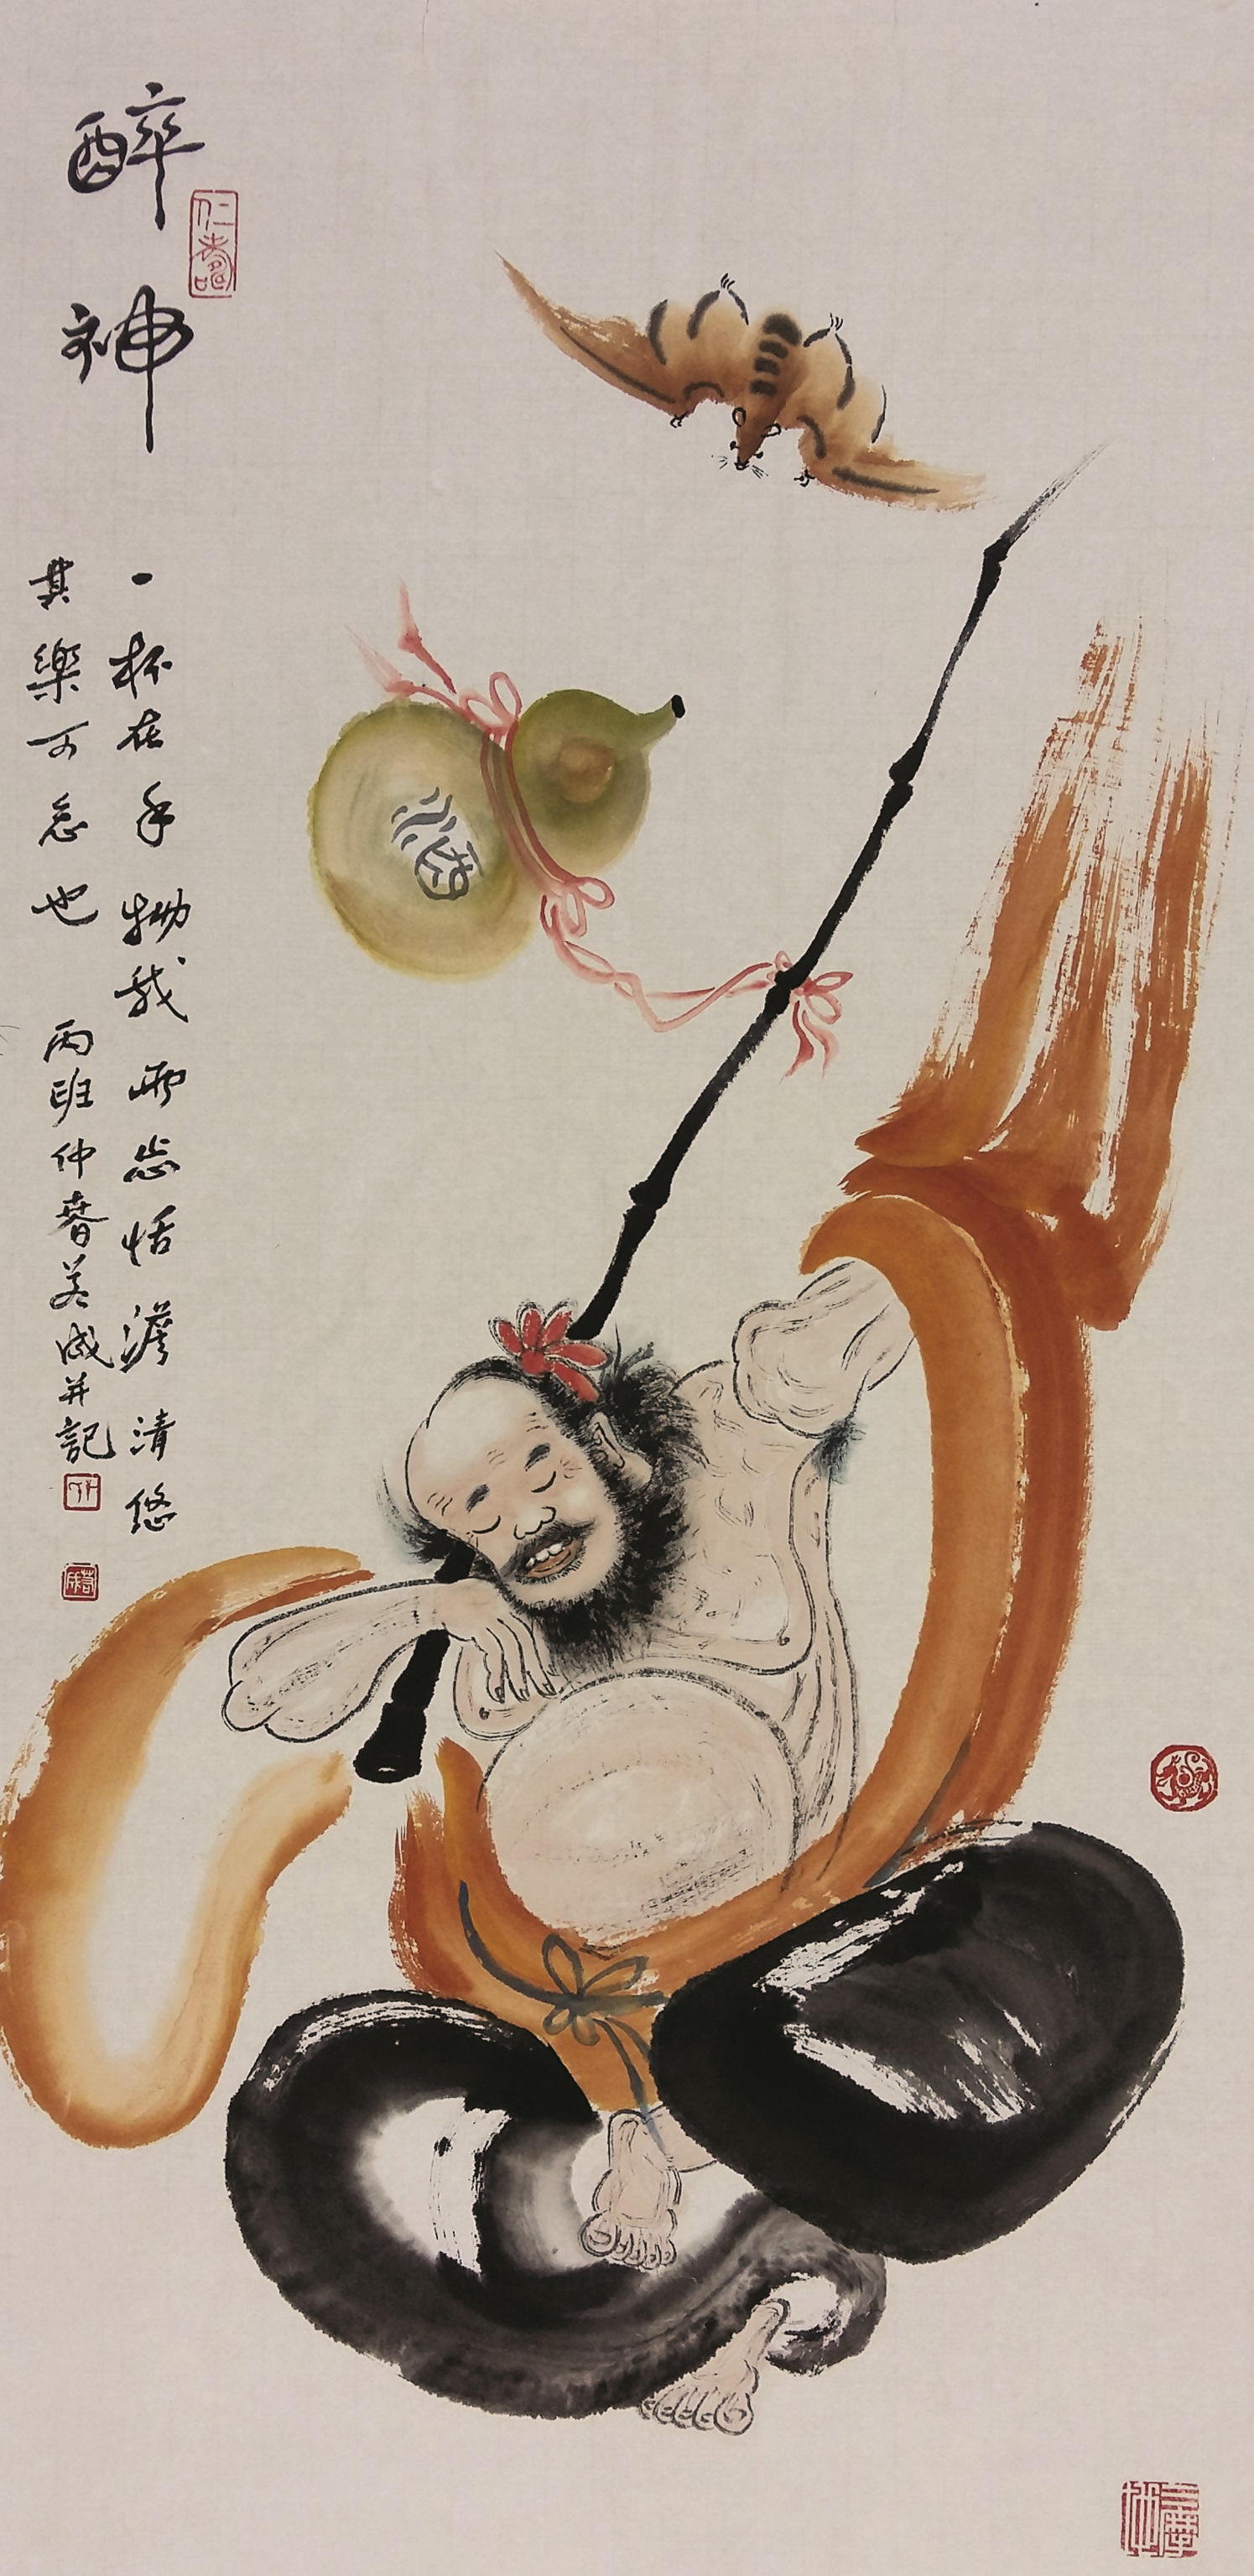 醉神
一杯在手物我兩忘恬澹清悠
其樂可忘也
丙班仲春若成并記
酒